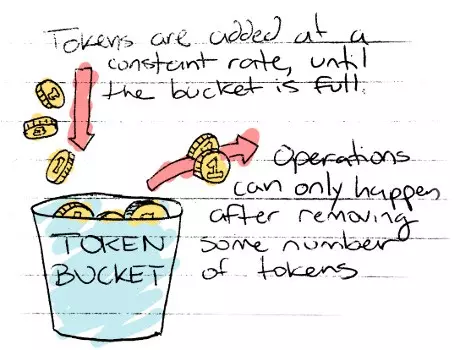 Tokens are added at a
constant rate, until
the bucket is full.
Operations
can only happen
after removing
some number
of tokens
TOKEN
BUCKET